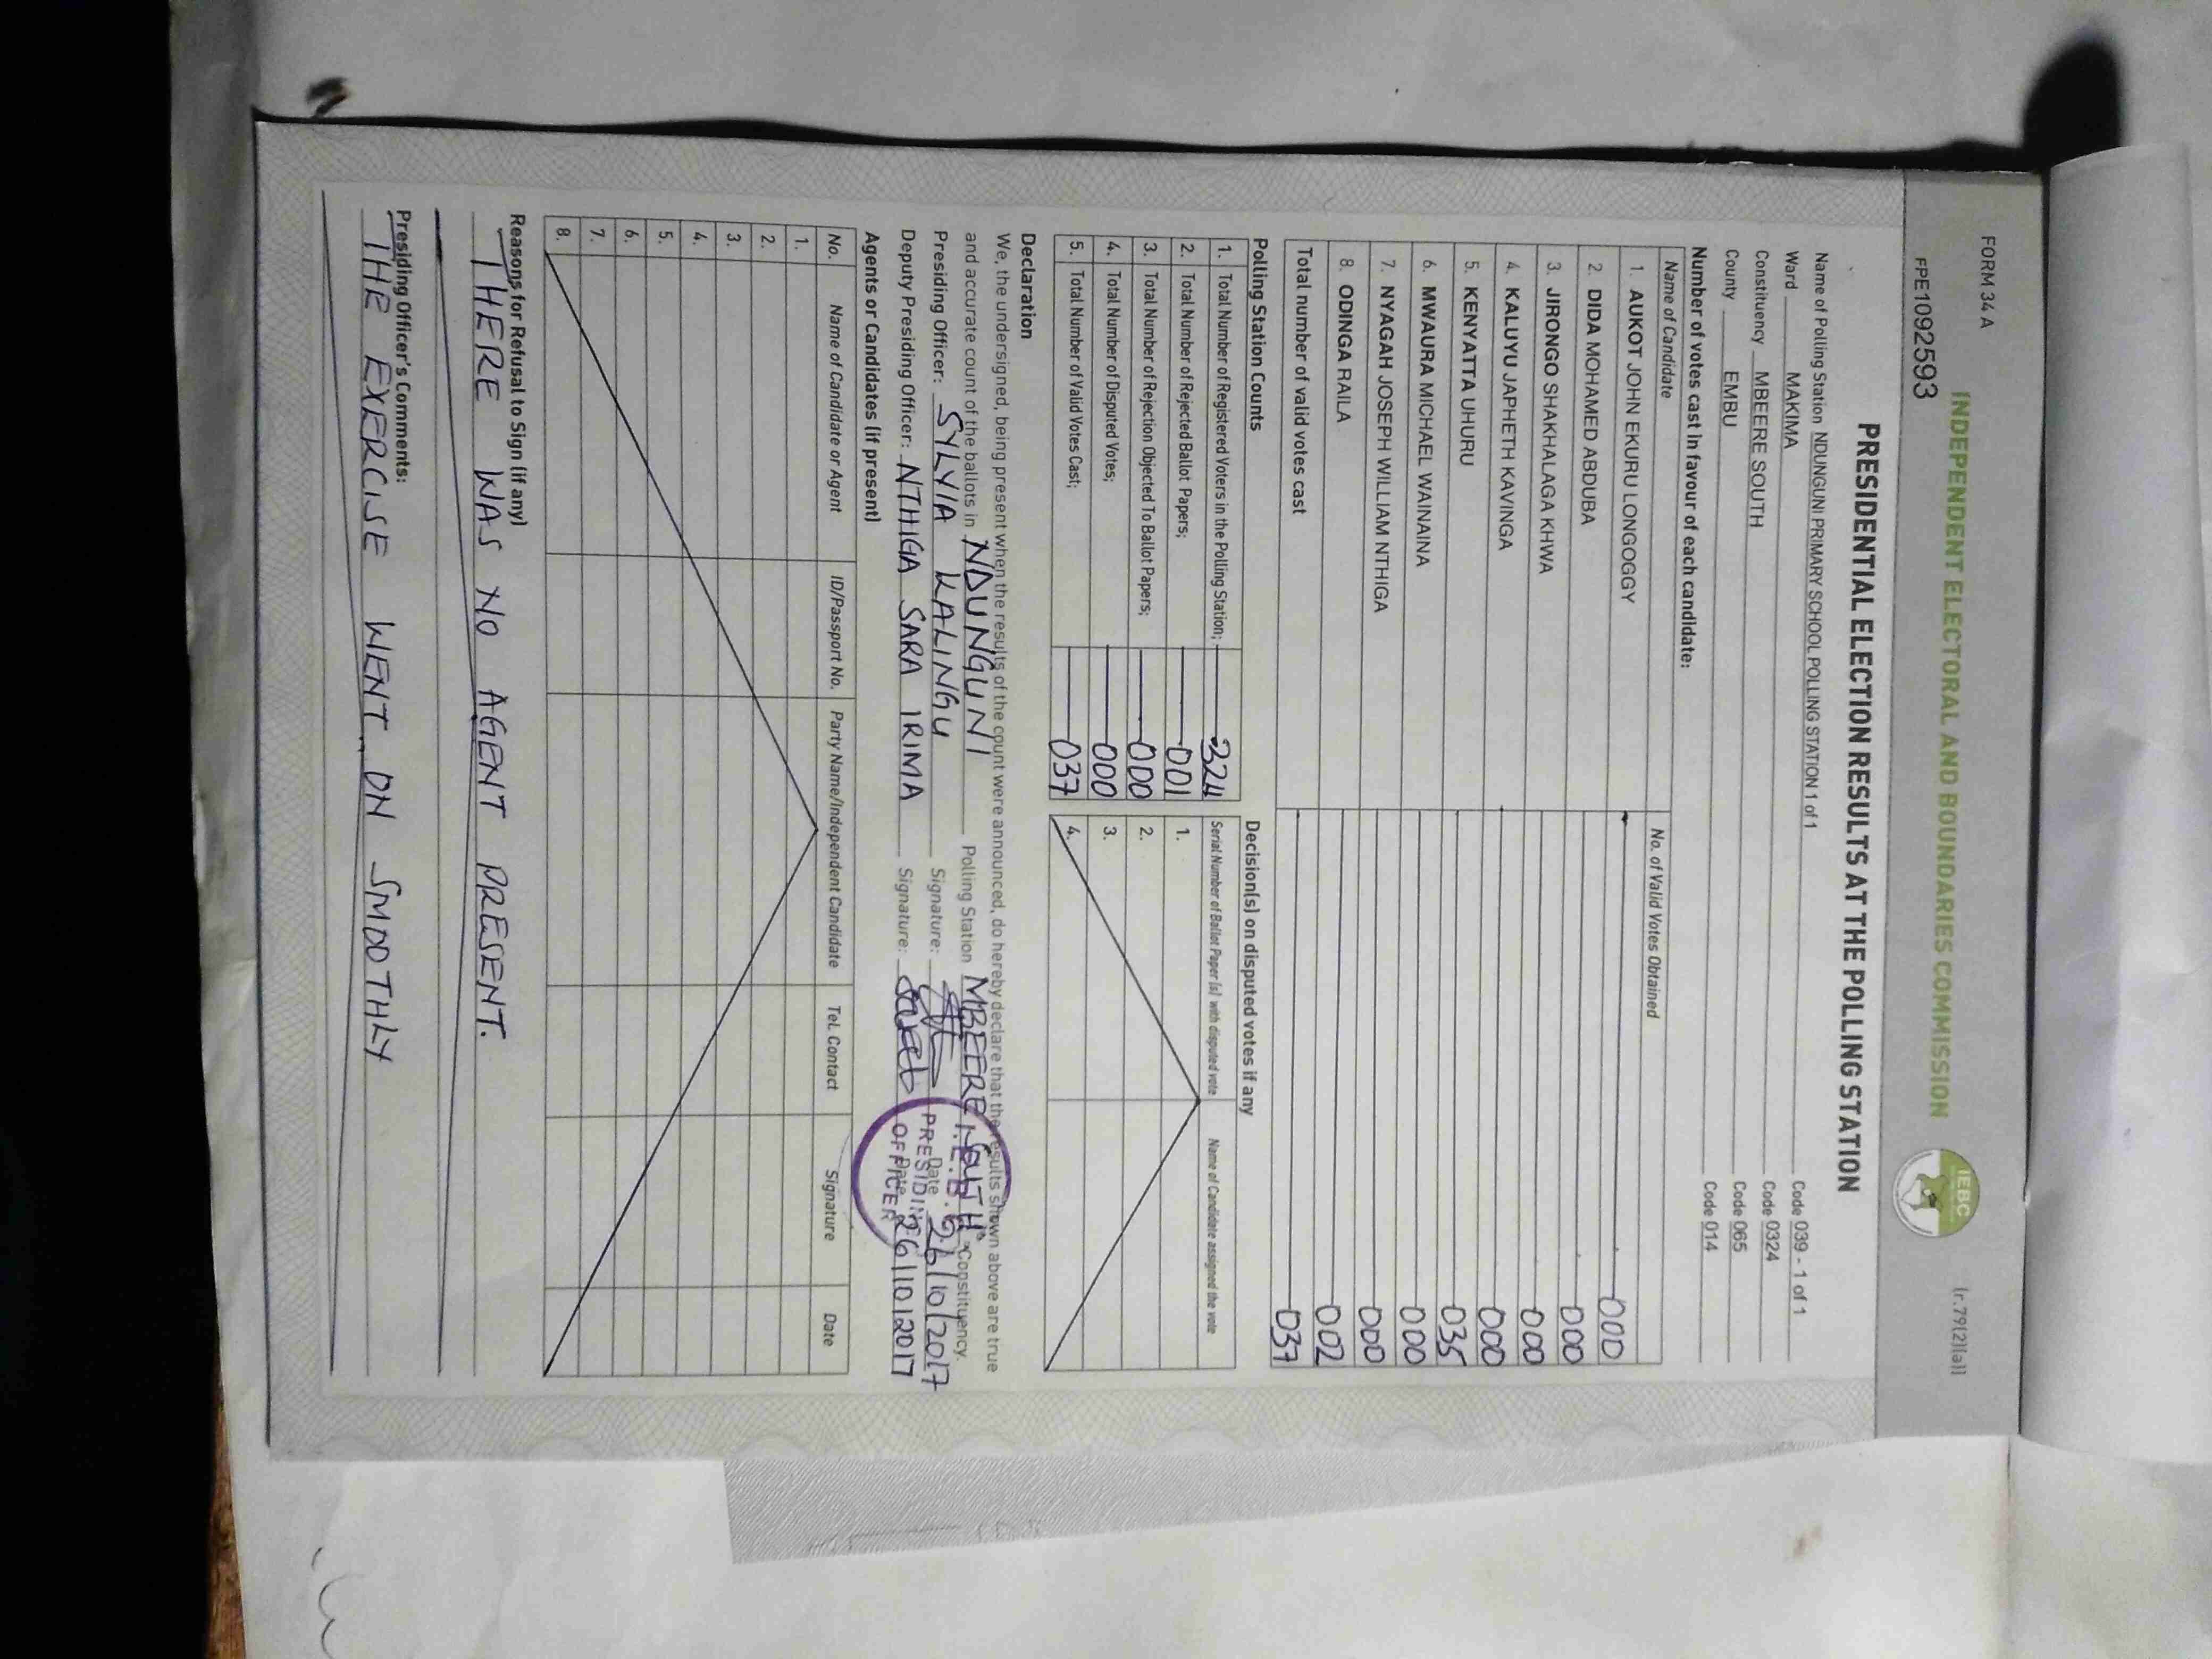 FORM 34 A
INDEPENDENT ELECTORAL AND BOUNDARIES COMMISSION
IEBC
(r.79(2)(a))
FPE1092593
PRESIDENTIAL ELECTION RESULTS AT THE POLLING STATION
Name of Polling Station NDUNGUNI PRIMARY SCHOOL POLLING STATION 1 of 1
Ward MAKIMA Code 039 - 1 of 1
Constituency MBEERE SOUTH Code 0324
County EMBU Code 065
Code 014
Number of votes cast in favour of each candidate:
Name of Candidate No. of Valid Votes Obtained
1. AUKOT JOHN EKURU LONGOGGY 000
2. DIDA MOHAMED ABDUBA 000
3. JIRONGO SHAKHALAGA KHWA 000
4. KALUYU JAPHETH KAVINGA 000
5. KENYATTA UHURU 035
6. MWAURA MICHAEL WAINAINA 000
7. NYAGAH JOSEPH WILLIAM NTHIGA 000
8. ODINGA RAILA 002
Total number of valid votes cast 037
Polling Station Counts
1. Total Number of Registered Voters in the Polling Station; 324
2. Total Number of Rejected Ballot Papers; 001
3. Total Number of Rejection Objected To Ballot Papers; 000
4. Total Number of Disputed Votes; 000
5. Total Number of Valid Votes Cast; 037
Decision(s) on disputed votes if any
Serial Number of Ballot Paper (s) with disputed vote Name of Candidate assigned the vote
1.
2.
3.
4.
Declaration
We, the undersigned, being present when the results of the count were announced, do hereby declare that the results shown above are true
and accurate count of the ballots in NDUNGUNI Polling Station MBEERE SOUTH Constituency.
Presiding Officer: SYLVIA KALINGU Signature: Date 26/10/2017
Deputy Presiding Officer: NTHIGA SARA IRIMA Signature: Date 26/10/2017
I.E.B.C
PRESIDING
OFFICER
Agents or Candidates (if present)
No. Name of Candidate or Agent ID/Passport No. Party Name/Independent Candidate Tel. Contact Signature Date
1.
2.
3.
4.
5.
6.
7.
8.
Reasons for Refusal to Sign (if any)
THERE WAS NO AGENT PRESENT.
Presiding Officer's Comments:
THE EXERCISE WENT ON SMOOTHLY